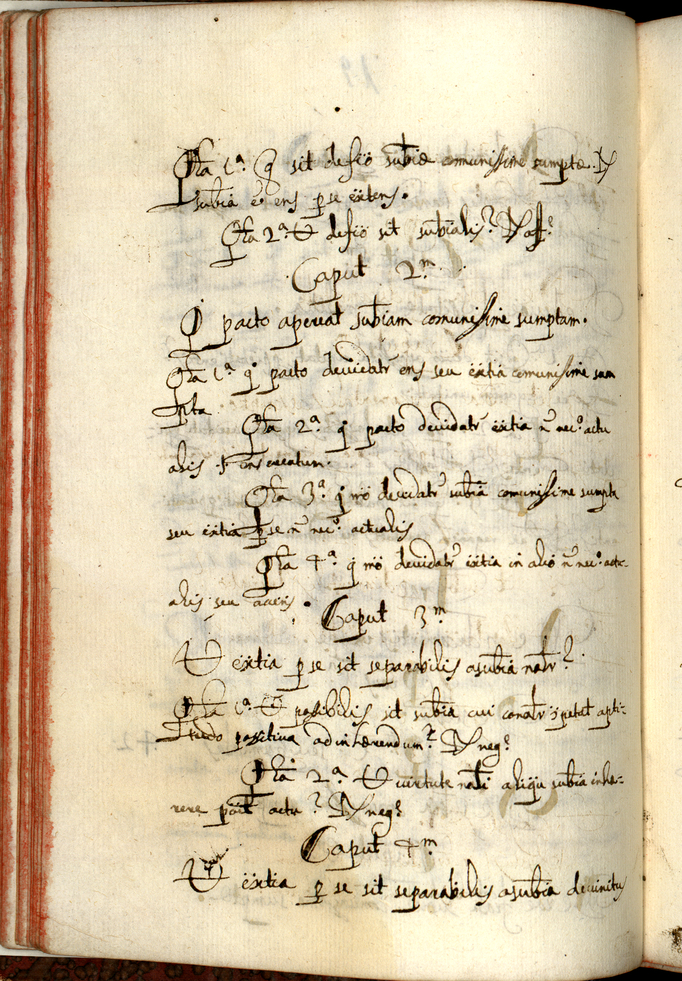 Qta 1.ª Q sit defiō subiæ comunissime sumptæ. R
subia ē ens p se exīens.
Qta 2.ª U defiō sit subialis? R aff.e
Caput 2.m
Q pacto aperiat subiam comunissime sumptam.
Qta 1.ª q pacto deuidatr ens seu exītia comunissime sum
pta
Qta 2.ª q pacto deuidatr exītia n nec.o actu
alis creatum.
Qta 3.ª q mō deuidatr subia comunissime sumpta
seu exītia p se n nec.o actualis
Qta 4.ª q mō deuidatr exītia in aliō n nec.o actu-
alis seu acens
Caput 3.m
U exītia p se sit separabilis a subia natr?
Qta 1.ª U possibilis sit subia cui conatr petat apti-
tudo positiua ad inhærendum? R neg.e
Qta 2.ª U uirtute natli aliqu subia inhæ-
rere poit actu? R neg.e
Caput 4.m
U exītia p se sit separabilis a subia deuinitus